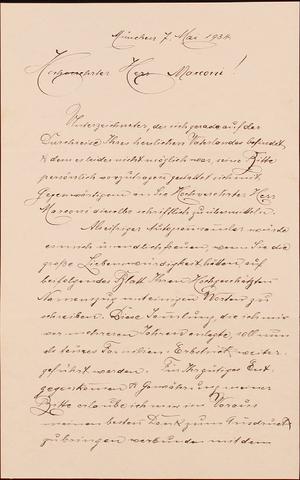 München 7. Mai 1934
Hochverehrter Herr Marconi!
Unterzeichneter, der sich gerade auf der
Durchreise Ihres herrlichen Vaterlandes befindet,
& dem es leider nicht möglich war, seine Bitte
persönlich vorzutragen gestattet sich mit
Gegenwärtigem an Sie Hochverehrter Herr
Marconi dieselbe schriftlich zu übermitteln.
Als eifriger Autogrammsammler würde
es mich unendlich freuen, wenn Sie die
große Liebenswürdigkeit hätten, auf
beifolgendes Blatt Ihren Hochgeschätzten
Namenszug mit einigen Worten zu
schreiben. Diese Samlung die ich mir
vor mehreren Jahren anlegte, soll nun
als teures Familien-Erbstück weiter-
geführt werden. Für Ihr gütiges Ent-
gegenkommen & Gewährung meiner
Bitte erlaube ich mir im Voraus
meinen besten Dank zum Ausdruck
zu bringen verbunden mit dem